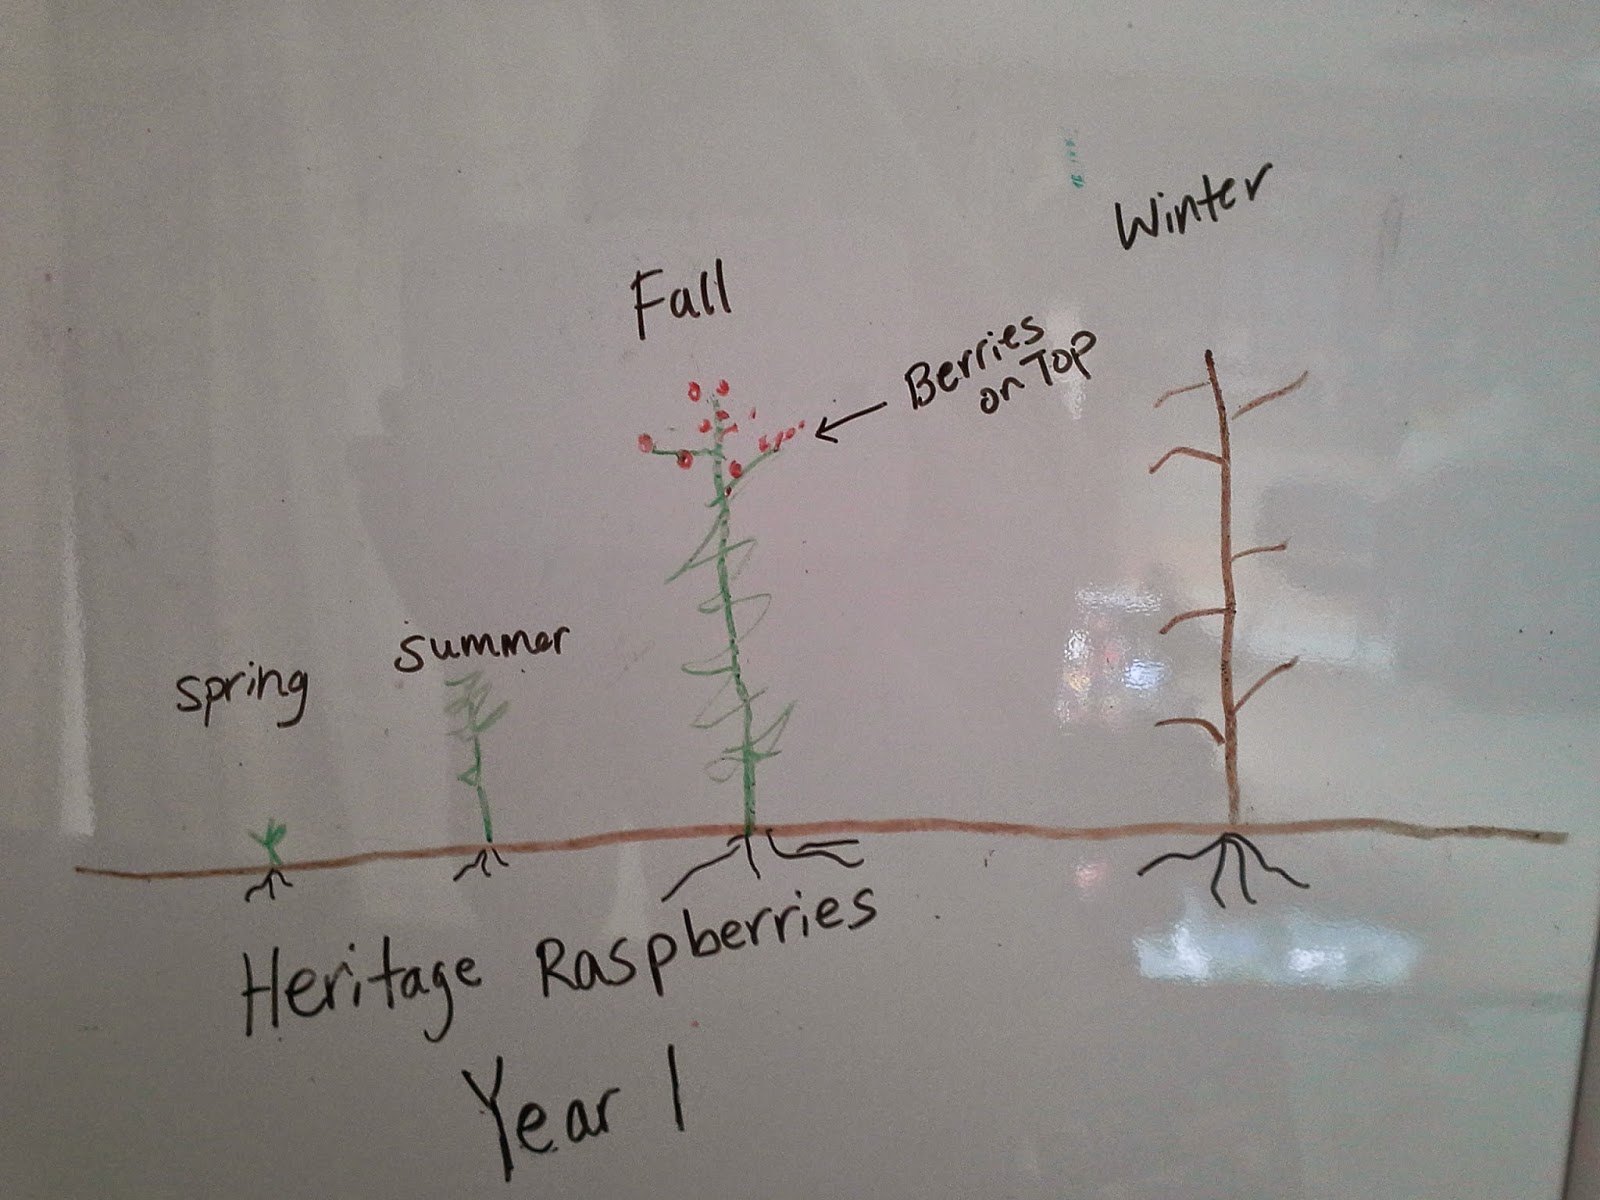 Winter
Fall
Berries
on Top
summer
spring
Heritage Raspberries
Year 1